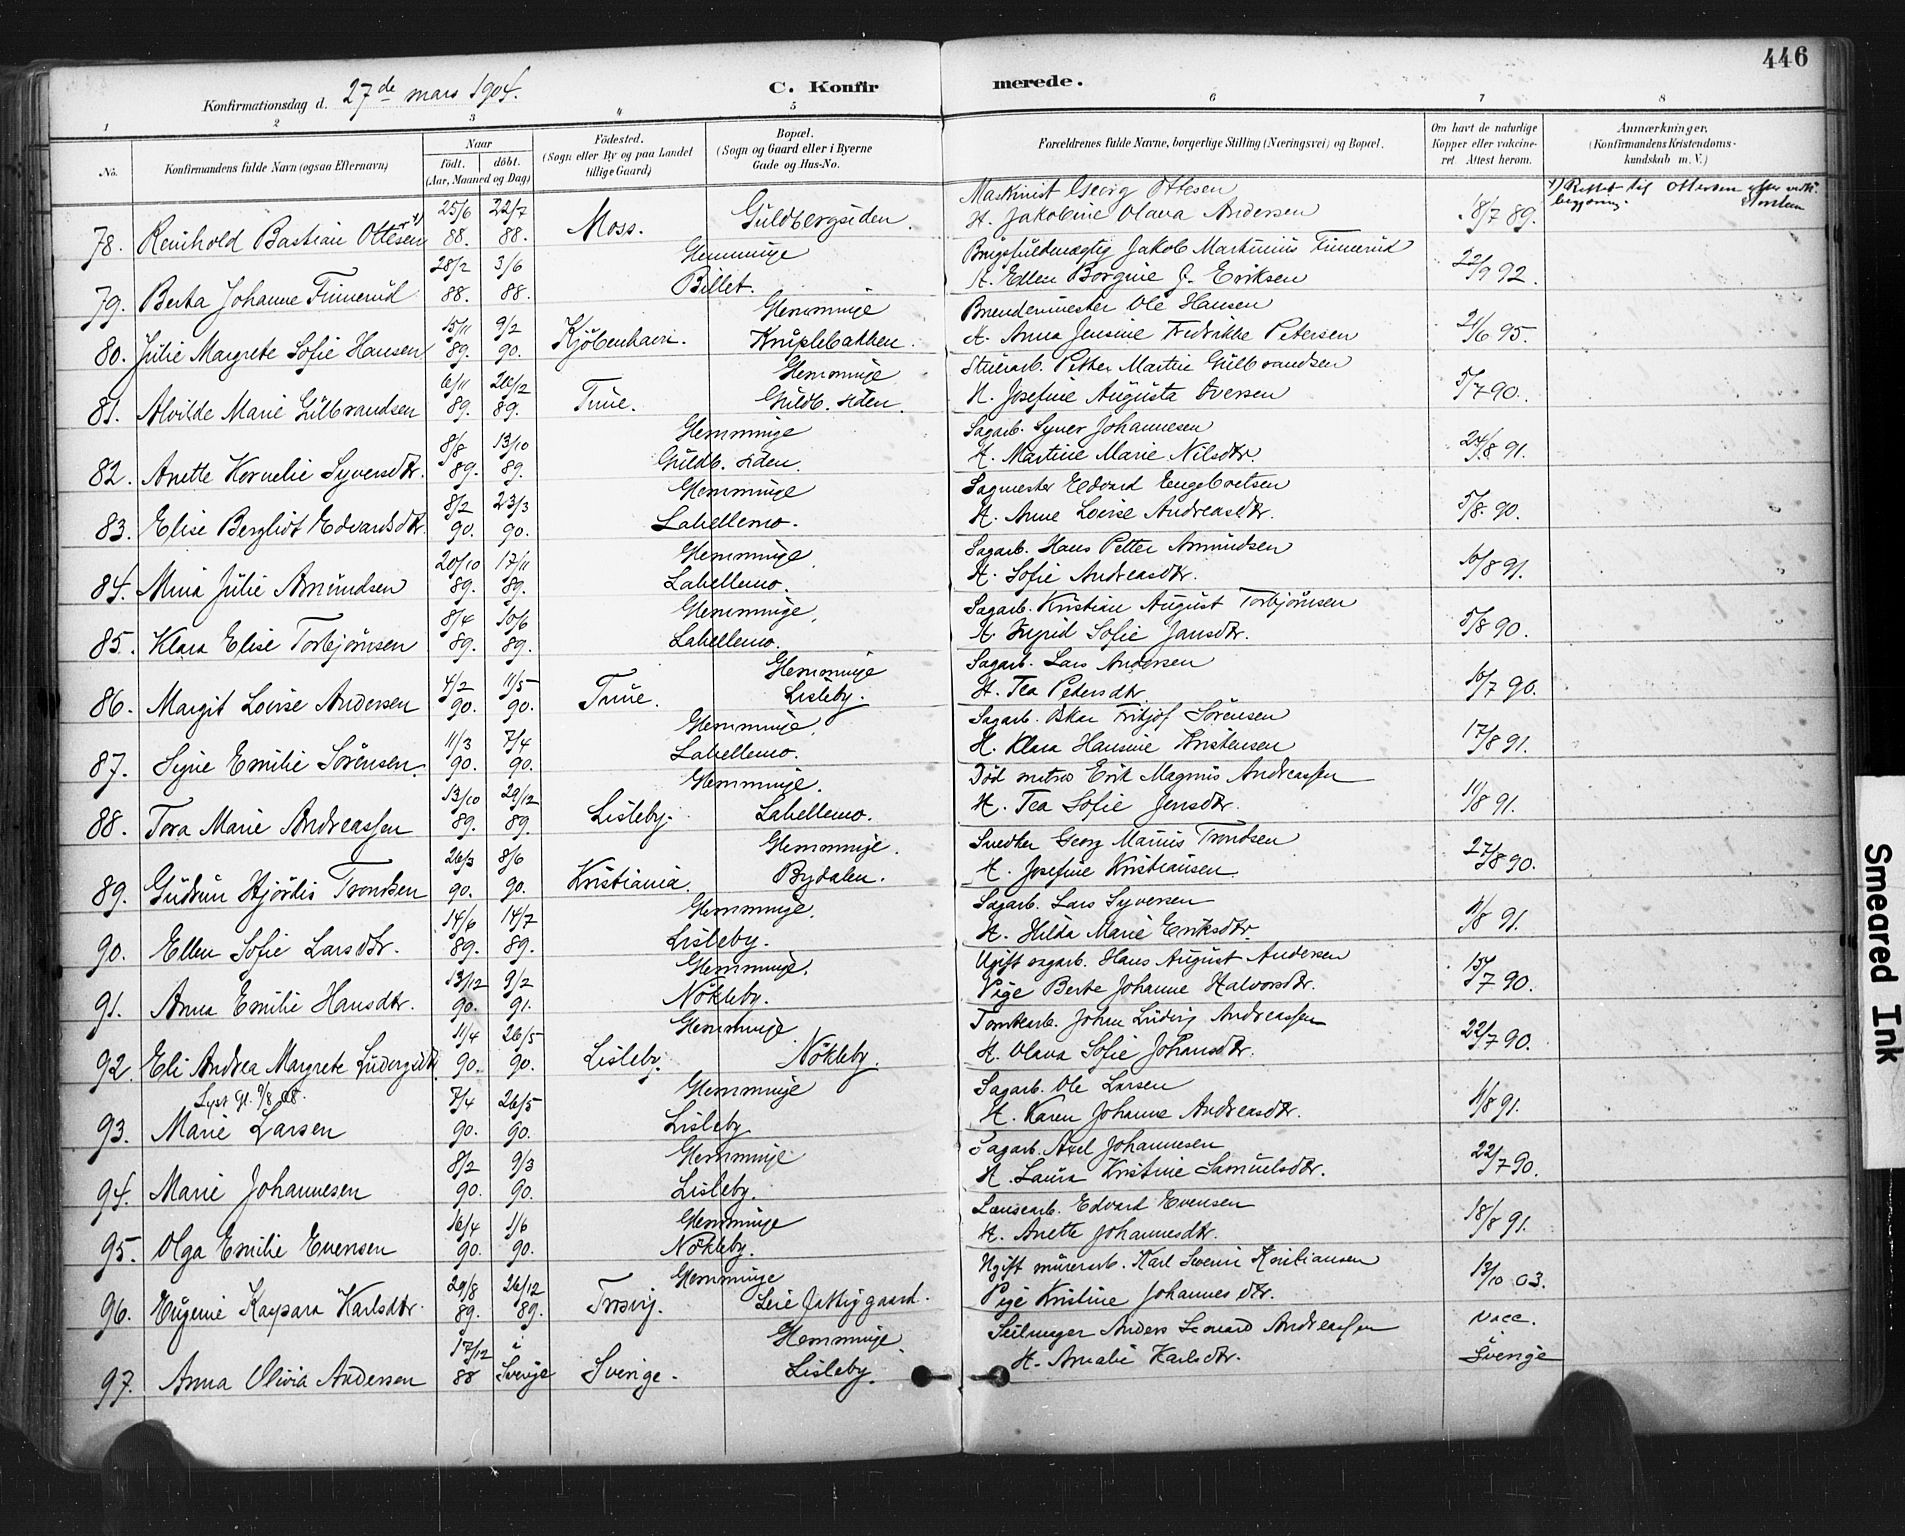 446
Konfirmationsdag d. 27de mars 1904.
C. Konfirmerede.
1 2 3 4 5 6 7 8
No. Konfirmandens fulde Navn (ogsaa Efternavn) Naar födt. döbt. (Aar, Maaned og Dag) Födested. (Sogn eller By og paa Landet tillige Gaard) Bopæl. (Sogn og Gaard eller i Byerne Gade og Hus-No. Forældrenes fulde Navne, borgerlige Stilling (Næringsvei) og Bopæl. Om havt de naturlige Kopper eller vakcineret. Attest herom. Anmærkninger. (Konfirmandens Kristendomskundskab m. V.)
25/6 22/7 Maskinist Georg Ottesen 1) Rettet til Ottersen efter
78. Reinhold Bastian Ottesen 1) 88. 88. Moss. Guldbergsiden. H. Jakobine Olava Andersen 18/7 89. begjæring.
28/2 3/6 Glemminge Brugsfuldmægtig Jakob Martinius Finnerud
79. Berta Johanne Finnerud 88. 88. Billet. H. Ellen Borgine f. Eriksen 22/9 92.
15/11 9/2 Glemminge Brændemester Ole Hansen
80. Julie Margrete Sofie Hansen 89. 90. Kjöbenhavn. Kniplebakken. H. Anna Jensine Fredrikke Petersen 21/6 95.
6/11 26/2 Glemminge Stuerarb. Petter Martin Gulbrandsen
81. Alvilde Marie Gulbrandsen 89. 89. Tune. Guldb. siden. H. Josefine Augusta Iversen 5/7 90.
8/8 13/10 Glemminge Sagarb. Syver Johannesen
82. Anette Kornelie Syversdtr. 89. 89. Guldb. siden. H. Martine Marie Nilsdtr. 24/8 91.
8/2 23/3 Glemminge Sagmester Edvard Engebretsen
83. Elise Bergliot Edvardsdtr. 90. 90. Lahellemo. H. Anne Lovise Andreasdtr. 5/8 90.
20/10 17/11 Glemminge. Sagarb. Hans Petter Amundsen
84. Mina Julie Amundsen 89. 89. Lahellemo. H. Sofie Andreasdtr. 10/8 91.
8/4 10/6 Glemminge. Sagarb. Kristian August Torbjörnsen
85. Klara Elise Torbjörnsen 89. 89. Lahellemo. H. Ingrid Sofie Jansdtr. 5/8 90.
4/2 11/5 Glemminge Sagarb. Lars Andersen
86. Margit Lovise Andersen 90. 90. Tune. Lisleby. H. Tea Petersdtr 10/7 90.
11/3 7/4 Glemminge. Sagarb. Oskar Fritjof Sörensen
87. Signe Emilie Sörensen. 90. 90. Lahellemo. H. Klara Hansine Kristensen 17/8 91.
13/10 29/12 Glemminge. Död matros Erik Magnus Andreassen
88. Tora Marie Andreassen 89. 89. Lisleby. Lahellemo. H. Tea Sofie Jensdtr. 11/8 91.
26/3 8/6 Glemminge. Snedker Georg Marius Trondsen
89. Gudrun Hjördis Trondsen 90. 90. Kristiania. Bydalen. H. Josefine Kristiansen 27/8 90.
14/6 14/7 Glemminge. Sagarb. Lars Syversen
90. Ellen Sofie Larsdtr. 89. 89. Lisleby. H. Hilda Marie Eriksdtr. 11/8 91.
13/12 9/2 Glemminge. Ugift sagarb. Hans August Andersen
91. Anna Emilie Hansdtr. 90. 91. Nökleby. Pige Berte Johanne Halvorsdtr. 15/7 90.
11/4 26/5 Glemminge Tomtearb. Johan Ludvig Andreassen
92. Eli Andrea Margrete Ludvigsdtr. 90. 90. Lisleby. Nökleby. H. Olava Sofie Johansdtr. 22/7 90.
7/4 26/5 Glemminge Sagarb. Ole Larsen
93. Marie Larsen 90. 90. Lisleby. H. Karen Johanne Andreasdtr. 11/8 91.
8/2 9/3 Glemminge Sagarb. Axel Johannesen
94. Marie Johannesen 90. 90. Lisleby. H. Laura Kristine Samuelsdtr. 22/7 90.
16/4 1/6 Glemminge Lænsearb. Edvard Evensen
95. Olga Emilie Evensen 90. 90. Nökleby. H. Anette Johannesdtr. 18/8 91.
29/8 26/12 Glemminge Ugift murerarb. Karl Severin Kristiansen
96. Eugenie Kaspara Karlsdtr. 89. 89. Trosvig. Leie Fattiggaard. Pige Kristine Johannesdtr. 13/10 03.
17/12 i Glemminge. Seilmager Anders Leonard Andreassen vacc.
97. Anna Olivia Andersen 88 Sverige Sverige. Lisleby. H. Amalie Karlsdtr. Sverige
Smeared Ink